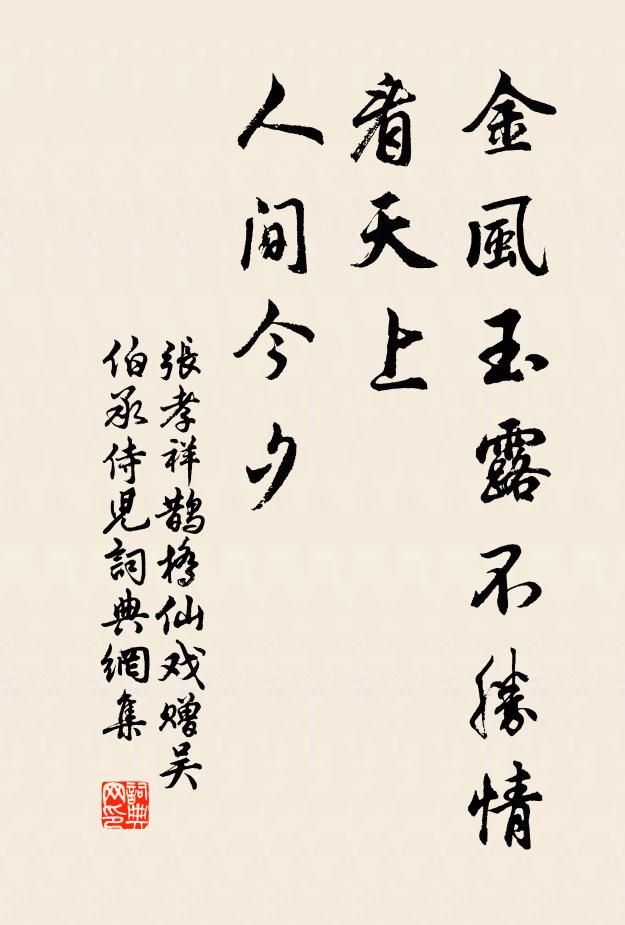 金風玉露不勝情
看天上
人间今夕
張孝祥鵲橋仙戏赠吴
伯承侍児詞典網集
詞典
网印